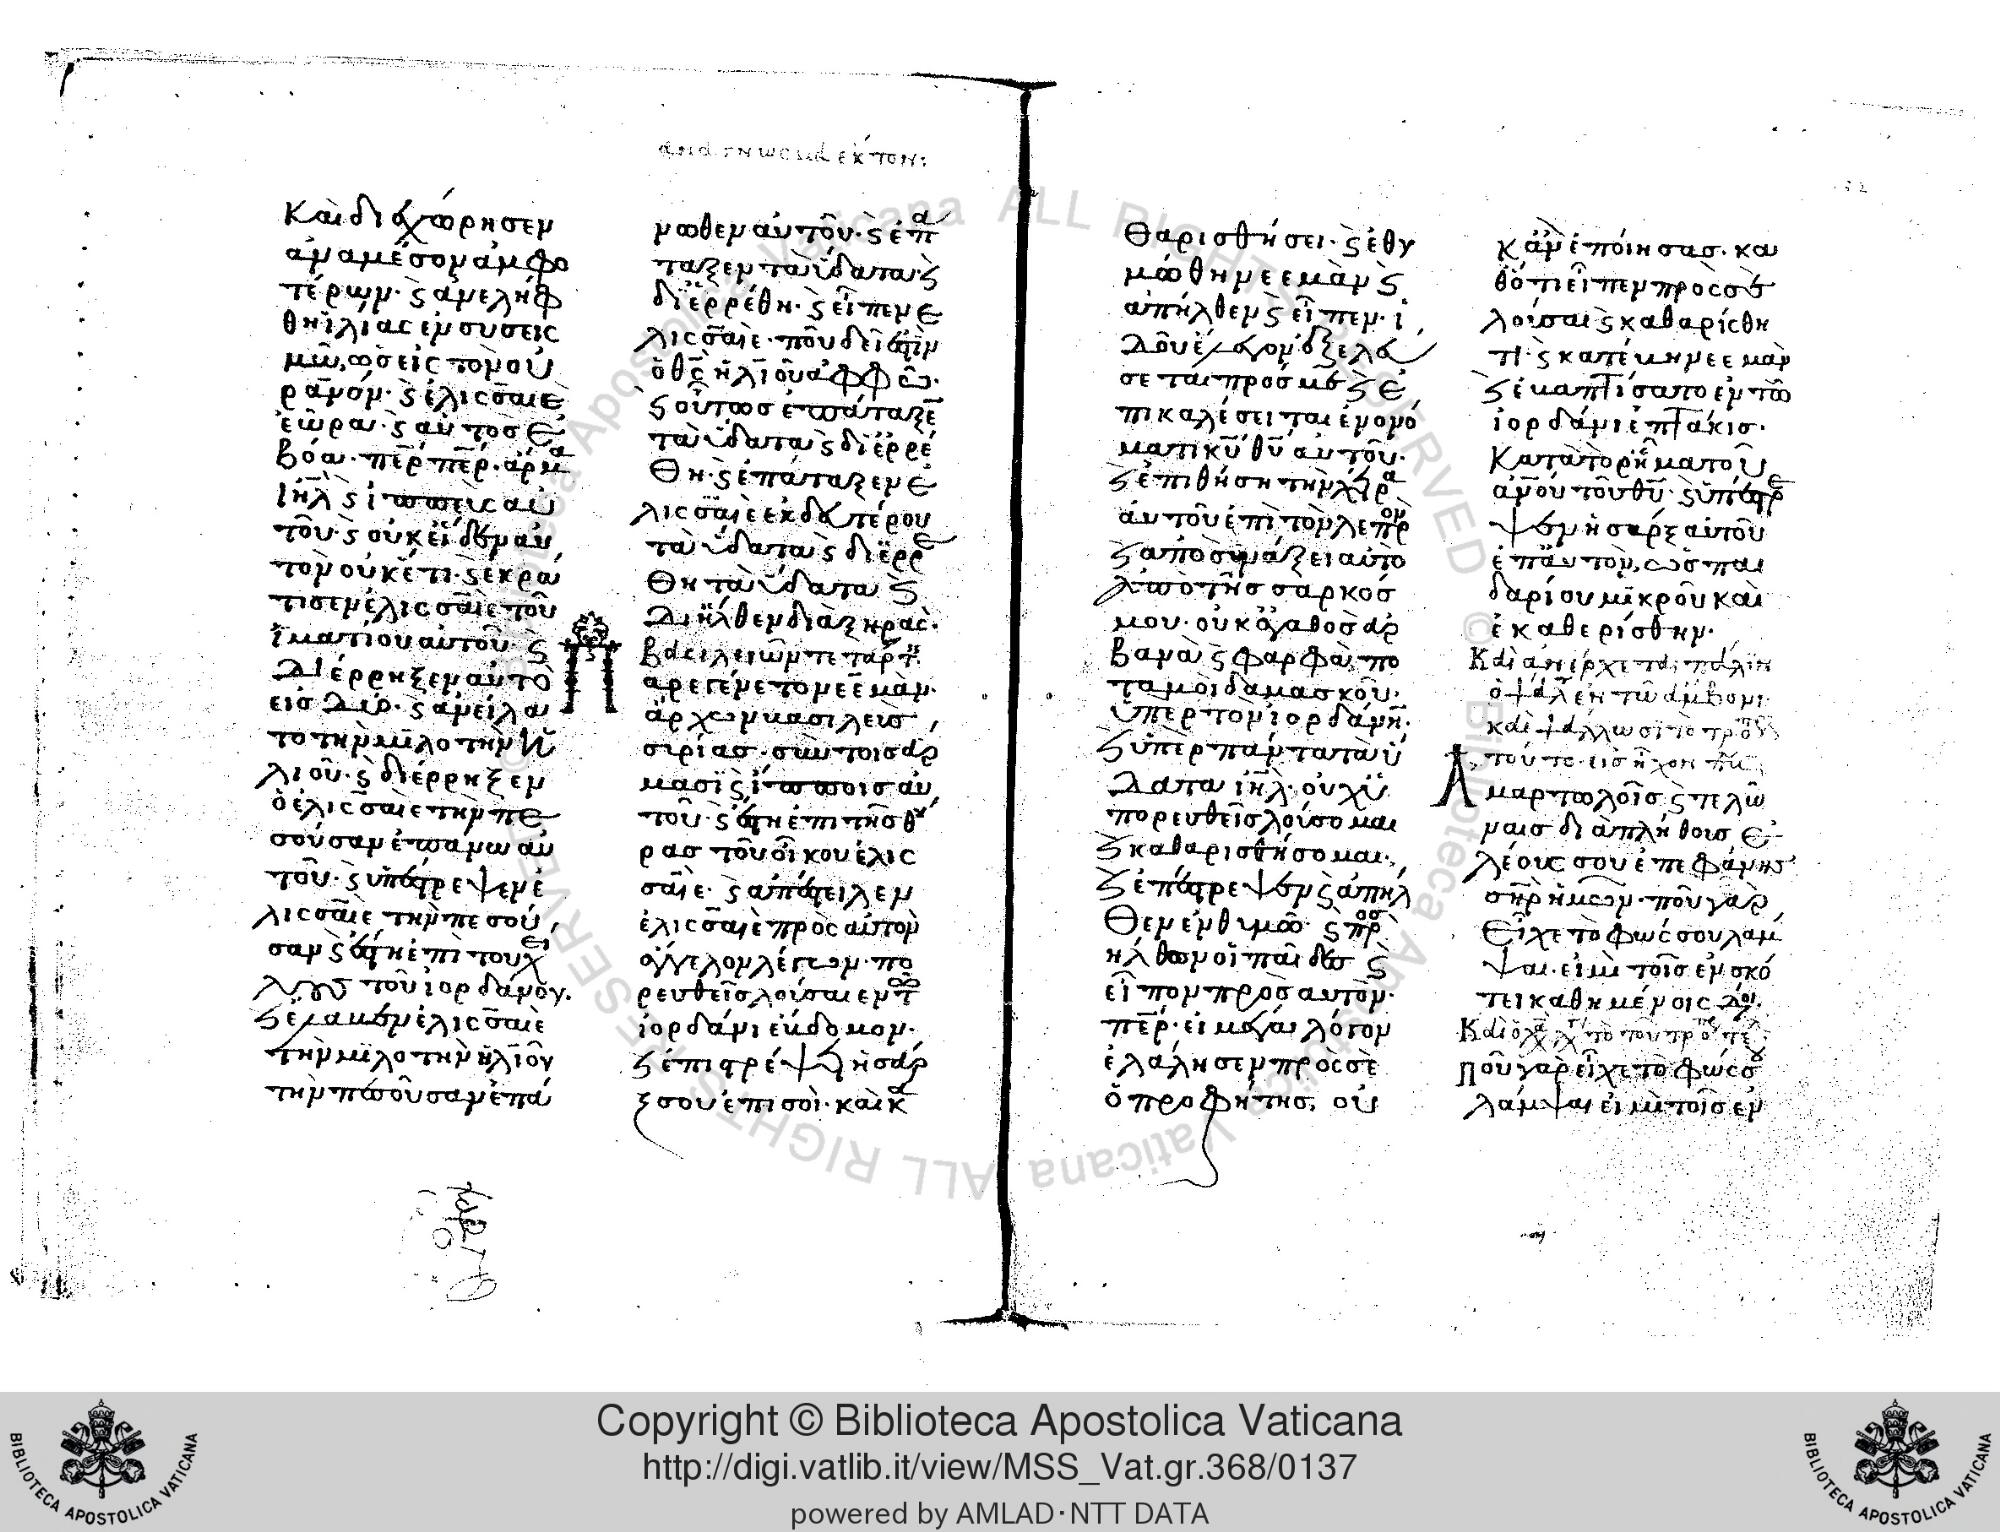 ἀναγνωσμα ἐκτον:
Καὶ διεχώρησεν
ἀναμέσον ἀμφο
τέρων· ϛ ἀνελήφ
θη ἡλίας ἐν συσεισ
μῶ, ὡς εἰς τὸν οὐ
ρανόν· ϛ ἐλισσαιὲ
ἑώρα· ϛ αὐτὸς ἐ
βόα· περ περ· ἄρμα
ιηλ ϛ ἱππεὺς αὐ
τοῦ· ϛ οὐκ εἶδεν αὐ
τὸν οὐκέτι· ϛ ἐκρά
τισεν ἐλισσαιὲ τοῦ
ἱματίου αὐτοῦ· ϛ
διέρρηξεν αὐτὸ
εἰς δύο· ϛ ἀνείλα
το τὴν μιλοτὴν ἠ
λιοῦ· ϛ διέρρηξεν
ὁ ἐλισσαιὲ τὴν πε
σοῦσαν ἐπάνω αὐ
τοῦ· ϛ ὑπέστρεψεν ἐ
λισσαιὲ τὴν πεσοῦ
σαν ϛ ἔστη ἐπὶ τοῦ χει
λους τοῦ ἰορδάνου.
ϛ ἔλαβεν ἐλισσαιὲ
τὴν μιλοτὴν ἠλιοῦ
τὴν πεσοῦσαν ἐπά
νωθεν αὐτοῦ· ϛ ἐπα
ταξεν τὰ ὕδατα· ϛ
διερρέθη· ϛ εἶπεν ἐ
λισσαιε· ποῦ δεί ἐστιν
ὁ θς ἠλιοῦ ἀφφω·
ϛ οὕτως ἐπάταξε
τὰ ὕδατα ϛ διερρέ
θη· ϛ ἐπάταξεν ἐ
λισσαιὲ ἐκ δευτέρου
τὰ ὕδατα ϛ διερρέ
θη τὰ ὕδατα ϛ
διῆλθεν διὰ ξηρᾶς·
βασιλειῶν τεταρτ
Παρεγένετο νεεμὰν·
ἄρχων βασιλεῖς
σιρίας· σὺν τοῖς ἄρ
μασι ϛ ἵπποις αὐ
τοῦ· ϛ ἔστη ἐπὶ τῆς θύ
ρας τοῦ οἴκου ἐλισ
σαιέ· ϛ ἀπέστειλεν
ἐλισσαιὲ πρὸς αὐτὸν
ἄγγελον λέγων· πο
ρευθεὶς λοῦσαι ἐν τῶ
ἰορδάνι ἕβδομον·
ϛ ἐπιστρέψει ἡ σάρ
ξ σου ἐπὶ σοὶ· καὶ κα
θαρισθήσει· ϛ ἐθυ
μώθη νεεμὰν ϛ
ἀπῆλθεν ϛ εἶπεν· ἰ
δοῦ ἔλεγον ἐξελεύ
σεται πρός με ϛ ἐ
πικαλέσεται ἐν ονό
ματι κυ θυ αὐτοῦ·
ϛ ἐπιθήση τὴν χεῖρα
αὐτοῦ ἐπὶ τὸν λεπρον
ϛ ἀποσυνάξει αὐτὸ
ἀπὸ τῆς σαρκός
μου· οὐκ ἀγαθὸς ἀρ
βανὰ ϛ φαρφὰ, πο
ταμοὶ δαμασκοῦ·
ὑπὲρ τὸν ἰορδάνη·
ϛ ὑπὲρ πάντα τὰ ὕ
δατα ιηλ· οὐχὶ
πορευθεὶς λούσομαι
ϛ καθαρισθήσομαι·
ϛ ἐπέστρεψεν ϛ ἀπῆλ
θεν ἐν θυμῶ· ϛ προσ
ηλθων οἱ παῖδες ϛ
εἶπον πρὸς αὐτὸν·
περ· εἰ μέγαν λόγον
ἐλάλησεν πρὸς σὲ
ὁ προφήτης, οὐ
κ ἂν ἐποίησας· κα
θότι εἶπεν πρὸς σὲ
λοῦσαι ϛ καθαρίσθη
τι· ϛ κατέβη νεεμαν
ϛ ἐβαπτίσατο ἐν τῶ
ἰορδάνι ἑπτάκις·
Κατὰ τὸ ρῆμα τοῦ
ανου τοῦ θυ· ϛ ὑπέστρε
ψεν ἡ σάρξ αὐτοῦ
ἐπ᾽ αὐτὸν, ὡς παι
δαρίου μικροῦ καὶ
ἐκαθερίσθην·
Καὶ ἀνέρχεται πάλιν
ὁ ψάλτης ἐν τῶ ἄμβωνι·
καὶ ψάλλωσι τὸ τρο
τοῦτο· εἰς ἦχον πλ
Ἁμαρτωλοῖς ϛ τελώ
ναις διὰ πλῆθοις ἐ
λέους σου ἐπεφάνης
σηρ ἡμῶν· ποῦ γὰρ
Εἶχε τὸ φῶς σου λάμ
ψαι· εἰ μὶ τοῖς ἐν σκό
τει καθημένοις δο
Ποῦ γὰρ εἶχε τὸ φῶς σου
λάμψαι εἰ μὶ τοῖς ἐν
Copyright © Biblioteca Apostolica Vaticana
http://digi.vatlib.it/view/MSS_Vat.gr.368/0137
powered by AMLAD·NTT DATA
BIBLIOTECA APOSTOLICA VATICANA
BIBLIOTECA APOSTOLICA VATICANA